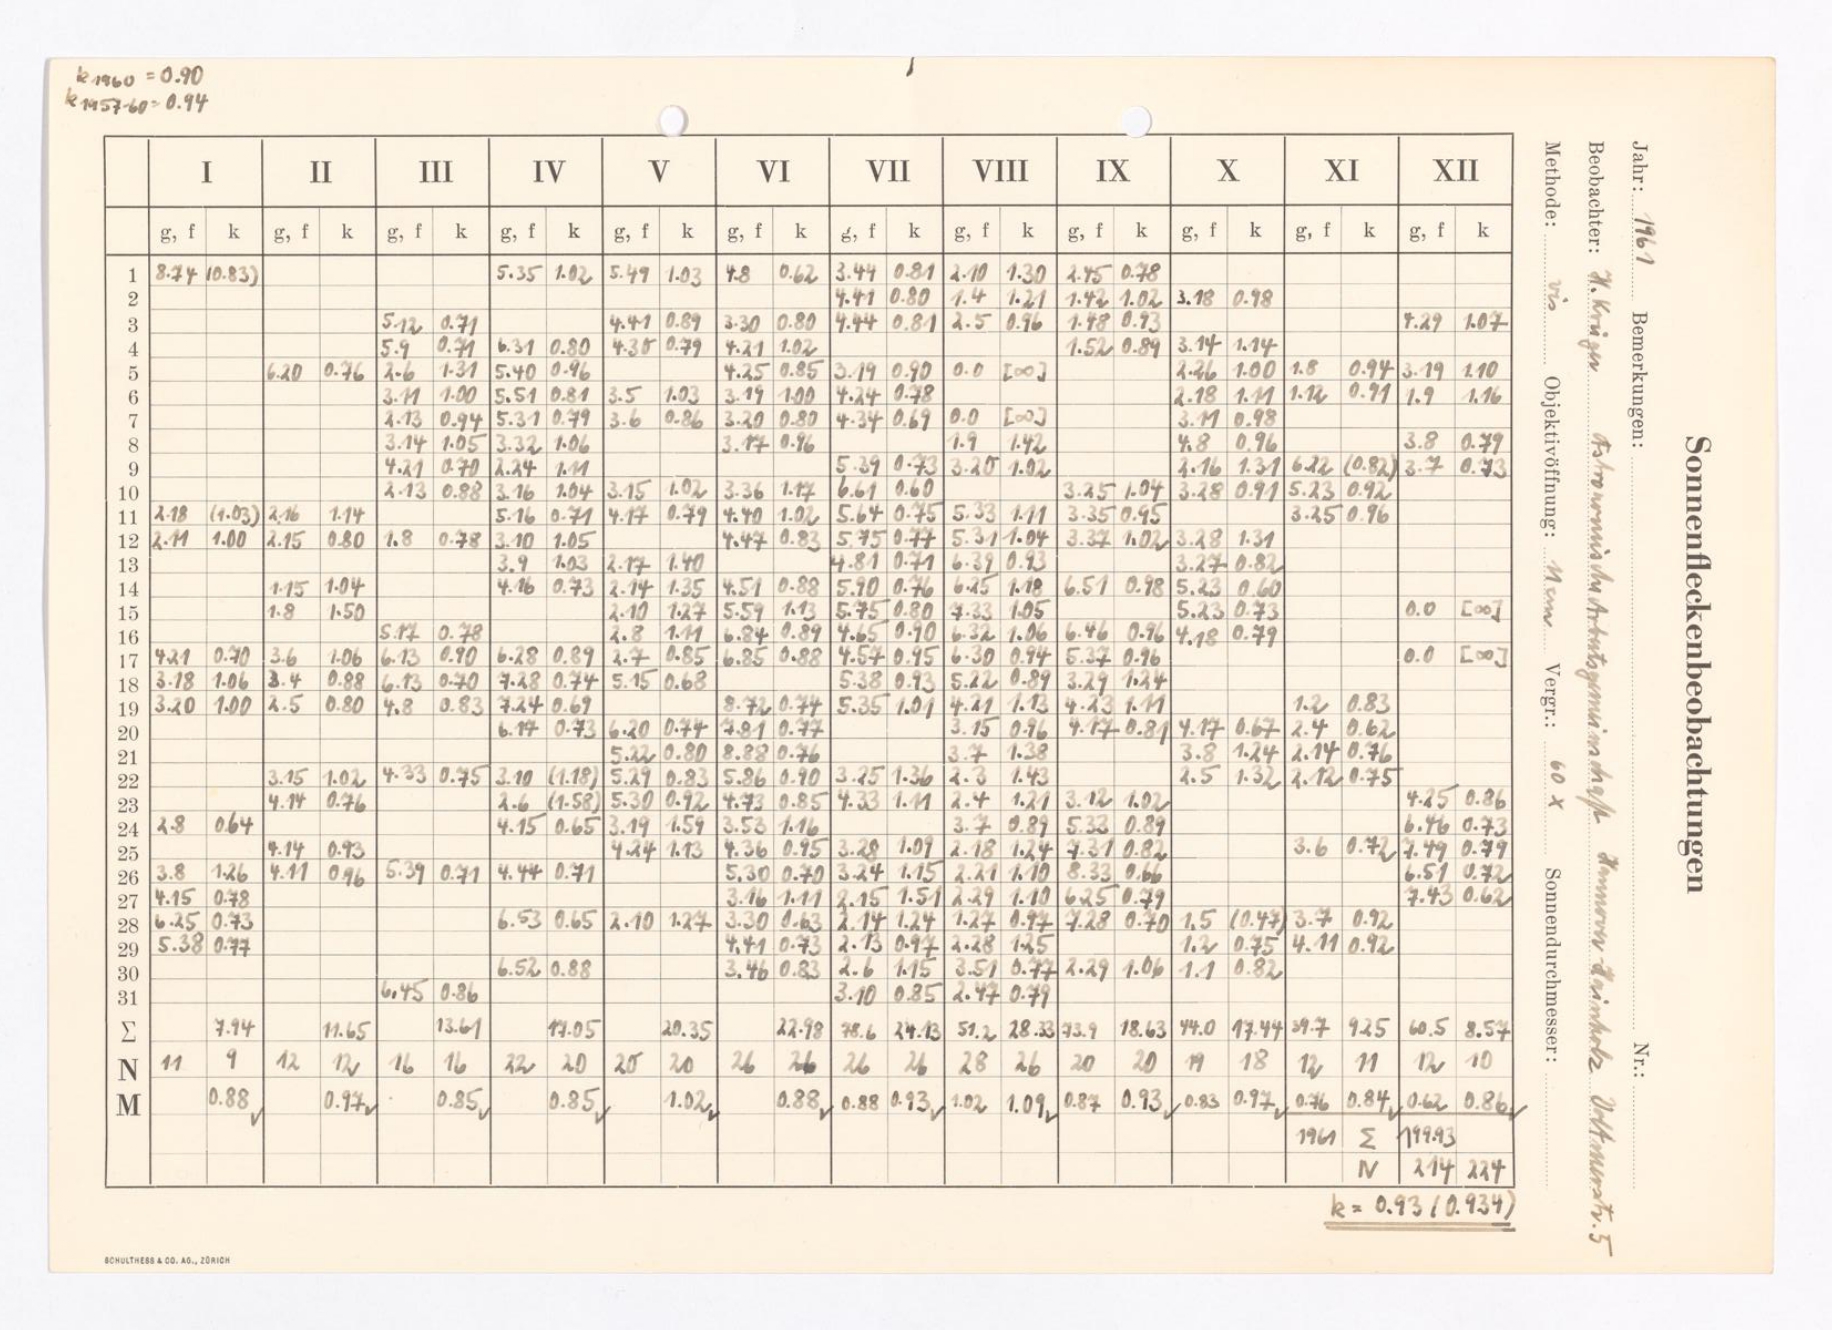 k 1960 = 0.90
k 1957-60 = 0.94
Sonnenfleckenbeobachtungen
Jahr: 1961 Bemerkungen: Nr.:
Beobachter: H. Krüger Astronomische Arbeitsgemeinschaft Hannover
Methode: vis Objektivöffnung: Vergr.: 60 x Sonnendurchmesser:
I II III IV V VI VII VIII IX X XI XII
g, f k g, f k g, f k g, f k g, f k g, f k g, f k g, f k g, f k g, f k g, f k g, f k
1 8.74 (0.83) 5.35 1.02 5.49 1.03 4.8 0.62 3.44 0.81 2.10 1.30 2.45 0.78
2 4.41 0.80 1.4 1.21 1.42 1.02 3.18 0.98
3 5.12 0.71 4.41 0.89 3.30 0.80 4.44 0.81 2.5 0.96 1.48 0.93 4.29 1.07
4 5.9 0.71 6.31 0.80 4.30 0.79 4.21 1.02 1.52 0.89 3.14 1.14
5 6.20 0.76 2.6 1.31 5.40 0.96 4.25 0.85 3.19 0.90 0.0 [∞] 2.26 1.00 1.8 0.94 3.19 1.10
6 3.11 1.00 5.51 0.81 3.5 1.03 3.19 1.00 4.24 0.78 2.18 1.11 1.12 0.91 1.9 1.16
7 2.13 0.94 5.31 0.79 3.6 0.86 3.20 0.80 4.34 0.69 0.0 [∞] 3.11 0.98
8 3.14 1.05 3.32 1.06 3.17 0.96 1.9 1.42 4.8 0.96 3.8 0.79
9 4.21 0.70 2.24 1.11 5.39 0.73 3.20 1.02 2.16 1.31 6.22 (0.82) 3.7 0.73
10 2.13 0.88 3.16 1.04 3.15 1.02 3.36 1.17 6.61 0.60 3.25 1.04 3.28 0.91 5.23 0.92
11 2.18 (1.03) 2.16 1.14 5.16 0.71 4.17 0.79 4.40 1.02 5.64 0.75 5.33 1.11 3.35 0.95 3.25 0.96
12 2.11 1.00 2.15 0.80 1.8 0.78 3.10 1.05 4.47 0.83 5.75 0.77 5.31 1.04 3.37 1.02 3.28 1.31
13 3.9 1.03 2.17 1.40 4.81 0.71 6.39 0.93 3.27 0.82
14 1.15 1.04 4.16 0.73 2.14 1.35 4.51 0.88 5.90 0.76 6.25 1.18 6.51 0.98 5.23 0.60
15 1.8 1.50 2.10 1.27 5.59 1.13 5.75 0.80 7.33 1.05 5.23 0.73 0.0 [∞]
16 5.17 0.78 2.8 1.11 6.84 0.89 4.65 0.90 6.32 1.06 6.46 0.96 4.18 0.79
17 4.21 0.70 3.6 1.06 6.13 0.90 6.28 0.89 2.7 0.85 6.85 0.88 4.57 0.95 6.30 0.94 5.37 0.96 0.0 [∞]
18 3.18 1.06 3.4 0.88 6.13 0.70 7.28 0.74 5.15 0.68 5.38 0.93 5.22 0.89 3.29 1.24
19 3.20 1.00 2.5 0.80 4.8 0.83 7.24 0.69 8.72 0.74 5.35 1.01 4.21 1.13 4.23 1.11 1.2 0.83
20 6.17 0.73 6.20 0.74 7.81 0.77 3.15 0.96 4.17 0.81 4.17 0.67 2.4 0.62
21 5.22 0.80 8.88 0.76 3.7 1.38 3.8 1.24 2.14 0.76
22 3.15 1.02 4.33 0.75 3.10 (1.18) 5.29 0.83 5.86 0.90 3.25 1.36 2.3 1.43 2.5 1.32 2.12 0.75
23 4.14 0.76 2.6 (1.58) 5.30 0.92 4.73 0.85 4.33 1.11 2.4 1.21 3.12 1.02 4.25 0.86
24 2.8 0.64 4.15 0.65 3.19 1.59 3.53 1.16 3.7 0.89 5.33 0.89 6.46 0.73
25 4.14 0.93 4.24 1.13 4.36 0.95 3.28 1.09 2.18 1.24 7.31 0.82 3.6 0.72 7.49 0.79
26 3.8 1.26 4.11 0.96 5.39 0.71 4.44 0.71 5.30 0.70 3.24 1.15 2.21 1.10 8.33 0.66 6.51 0.72
27 4.15 0.78 3.16 1.11 2.15 1.51 2.29 1.10 6.25 0.79 7.43 0.62
28 6.25 0.73 6.53 0.65 2.10 1.27 3.30 0.63 2.14 1.24 1.27 0.97 7.28 0.70 1.5 (0.47) 3.7 0.92
29 5.38 0.77 4.41 0.73 2.13 0.97 2.28 1.25 1.2 0.75 4.11 0.92
30 6.52 0.88 3.46 0.83 2.6 1.15 3.51 0.77 2.29 1.06 1.1 0.82
31 6.45 0.86 3.10 0.85 2.47 0.79
Σ 7.94 11.65 13.61 17.05 20.35 22.98 78.6 24.13 51.2 28.33 73.9 18.63 44.0 17.44 39.7 9.25 60.5 8.57
N 11 9 12 12 16 16 22 20 20 20 26 26 26 26 28 26 20 20 19 18 12 11 12 10
M 0.88 0.97 0.85 0.85 1.02 0.88 0.88 0.93 1.02 1.09 0.87 0.93 0.83 0.97 0.76 0.84 0.62 0.86
1961 Σ 199.93
N 214 224
k = 0.93 (0.934)
SCHULTHESS & CO. AG., ZÜRICH